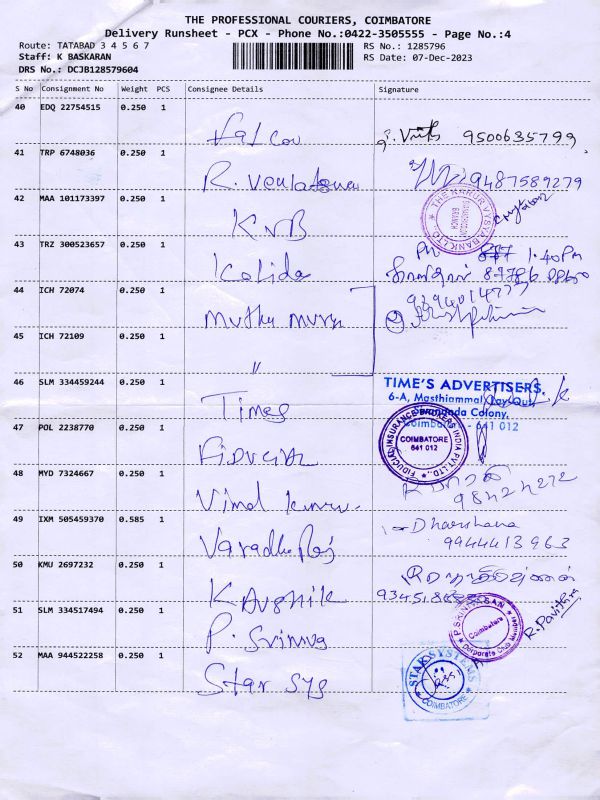 THE PROFESSIONAL COURIERS, COIMBATORE
Delivery Runsheet - PCX - Phone No.:0422-3505555 - Page No.:4
Route: TATABAD 3 4 5 6 7
RS No.: 1285796
Staff: K BASKARAN
RS Date: 07-Dec-2023
DRS No.: DCJB128579604
S No Consignment No Weight PCS Consignee Details Signature
40 EDQ 22754515 0.250 1
Falcon 9500635799
41 TRP 6748036 0.250 1
R. 9487589279
42 MAA 101173397 0.250 1
KVB THE KARUR VYSYA BANK LTD.
43 TRZ 300523657 0.250 1
1.40 PM
Kalidas
44 ICH 72074 0.250 1
Muthu
45 ICH 72109 0.250 1
"
46 SLM 334459244 0.250 1
TIME'S ADVERTISERS.
6-A, Masthiammal Layout
Colony,
Coimbatore - 641 012
Times
47 POL 2238770 0.250 1
FIDUCIAL INSURANCE BROKERS INDIA PVT LTD.,
COIMBATORE
641 012
Fiducial
48 MYD 7324667 0.250 1
Vimal
49 IXM 505459370 0.585 1
Dharshana
Varadha Raj 9944413963
50 KMU 2697232 0.250 1
Kaushik
51 SLM 334517494 0.250 1
P SRINIVASAN
Coimbatore
Corporate Club Member
R. Pavithra
P. Srinivas
52 MAA 944522258 0.250 1
STAR SYSTEMS
COIMBATORE
Star Sys